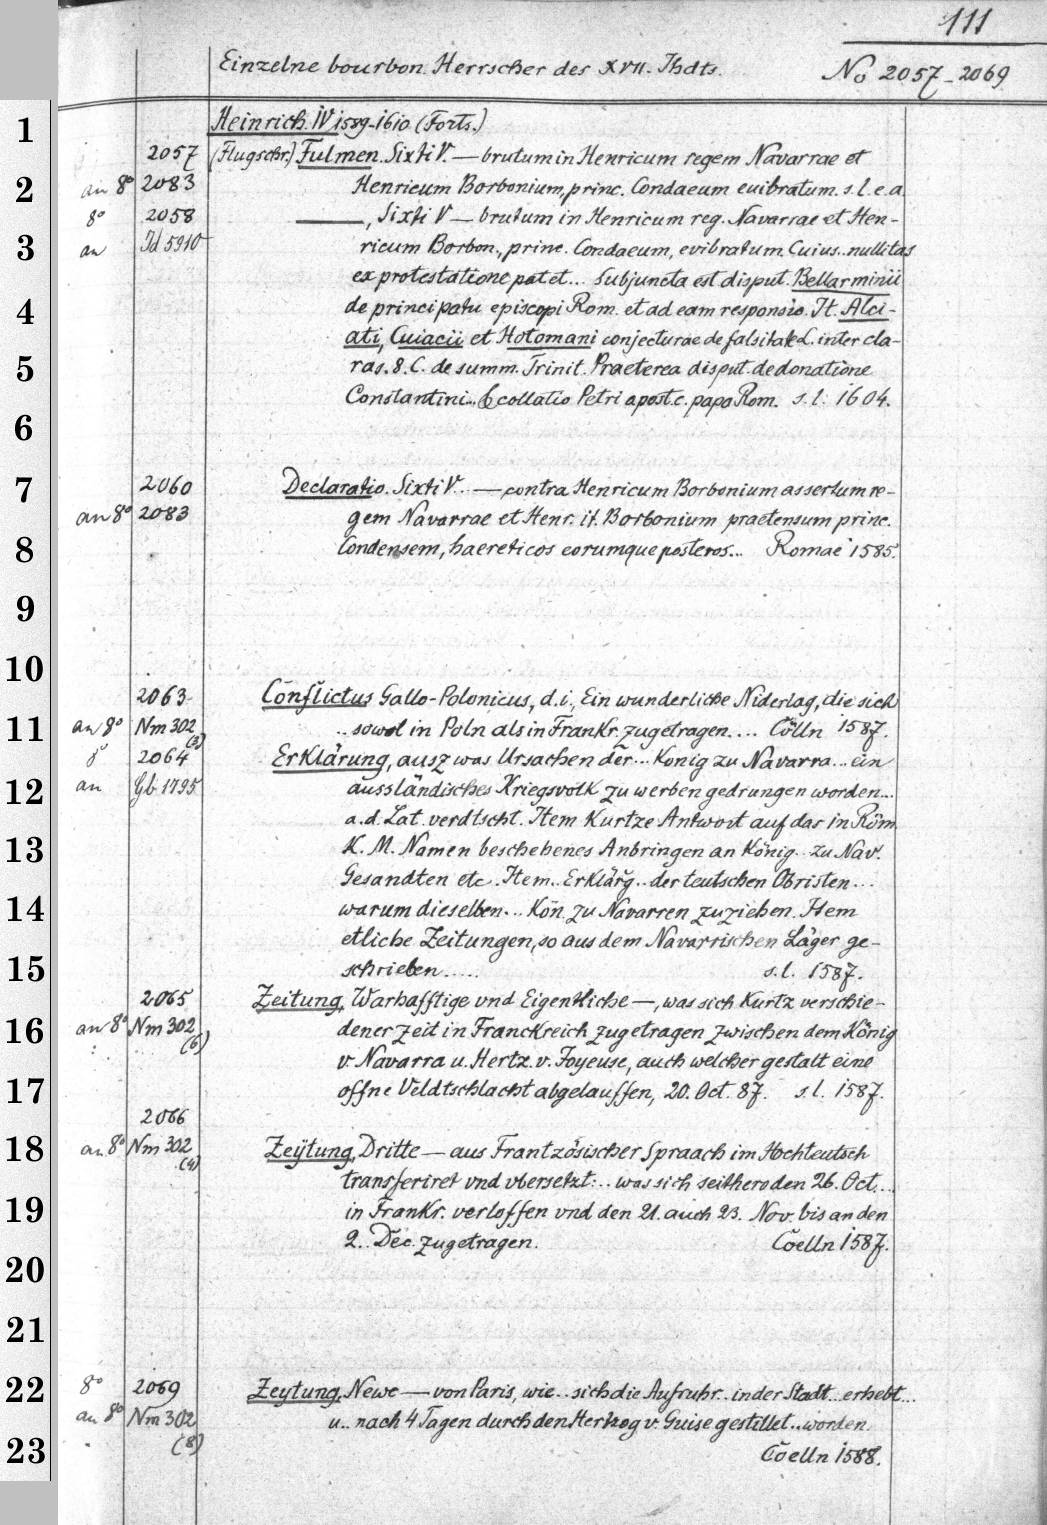 111
Einzelne bourbon. Herrscher des XVII. Jhdts. No 2057-2069
1 Heinrich IV 1589-1610 (Forts.)
2057 (Flugschr.) Fulmen. Sixti V. — brutum in Henricum regem Navarrae et
2 an 8° 2083 Henricum Borbonium, princ. Condaeum euibratum. s.l.e.a.
8° 2058 ———, Sixti V — brutum in Henricum reg. Navarrae et Hen-
3 an Jd 5910 ricum Borbon., princ. Condaeum, evibratum. Cuius.. nullitas
ex protestatione patet... Subjuncta est disput. Bellarminii
4 de principatu episcopi Rom. et ad eam responsio. It. Alci-
ati, Cuiacii et Hotomani conjecturae de falsitate L. inter cla-
5 ras. 8. C. de summ. Trinit. Praeterea disput. de donatione
Constantini.. & collatio Petri apost. c. papa Rom. s.l. 1604.
6
7 2060 Declaratio. Sixti V... — contra Henricum Borbonium assertum re-
an 8° 2083 gem Navarrae et Henr. it. Borbonium praetensum princ.
8 Condensem, haereticos eorumque posteros... Romae 1585.
9
10
2063 Conflictus Gallo-Polonicus, d.i., Ein wunderliche Niderlag, die sich
11 an 8° Nm 302 (3) .. sowol in Poln als in Frankr. zugetragen.... Cölln 1587.
8° 2064 Erklärung, ausz was Ursachen der... König zu Navarra... ein
12 an Gb 1795 aussländisches Kriegsvolk zu werben gedrungen worden...
a.d. Lat. verdtscht. Item Kurtze Antwort auf das in Röm.
13 K. M. Namen beschehenes Anbringen an König.. zu Nav.
Gesandten etc. Item.. Erklärg.. der teutschen Obristen...
14 warum dieselben... Kön. zu Navarren zuziehen. Item
etliche Zeitungen, so aus dem Navarrischen Läger ge-
15 schrieben..... s.l. 1587.
2065 Zeitung, Warhafftige vnd Eigentliche —, was sich Kurtz verschie-
16 an 8° Nm 302 (6) dener zeit in Franckreich zugetragen zwischen dem König
v. Navarra u. Hertz. v. Joyeuse, auch welcher gestalt eine
17 offne Veldtschlacht abgelauffen, 20. Oct. 87. s.l. 1587.
2066
18 an 8° Nm 302 (4) Zeÿtung, Dritte — aus Frantzösischer Spraach im Hochteutsch
transferiret vnd vbersetzt:.. was sich seithero den 26. Oct....
19 in Frankr. verloffen vnd den 21. auch 23. Nov. bis an den
2. Dec. zugetragen. Coelln 1587.
20
21
22 8° 2069 Zeytung, Newe — von Paris, wie.. sich die Aufruhr.. in der Stadt... erhebt...
an 8° Nm 302 (8) u.. nach 4 Tagen durch den Hertzog v. Guise gestillet.. worden.
23 Coelln 1588.